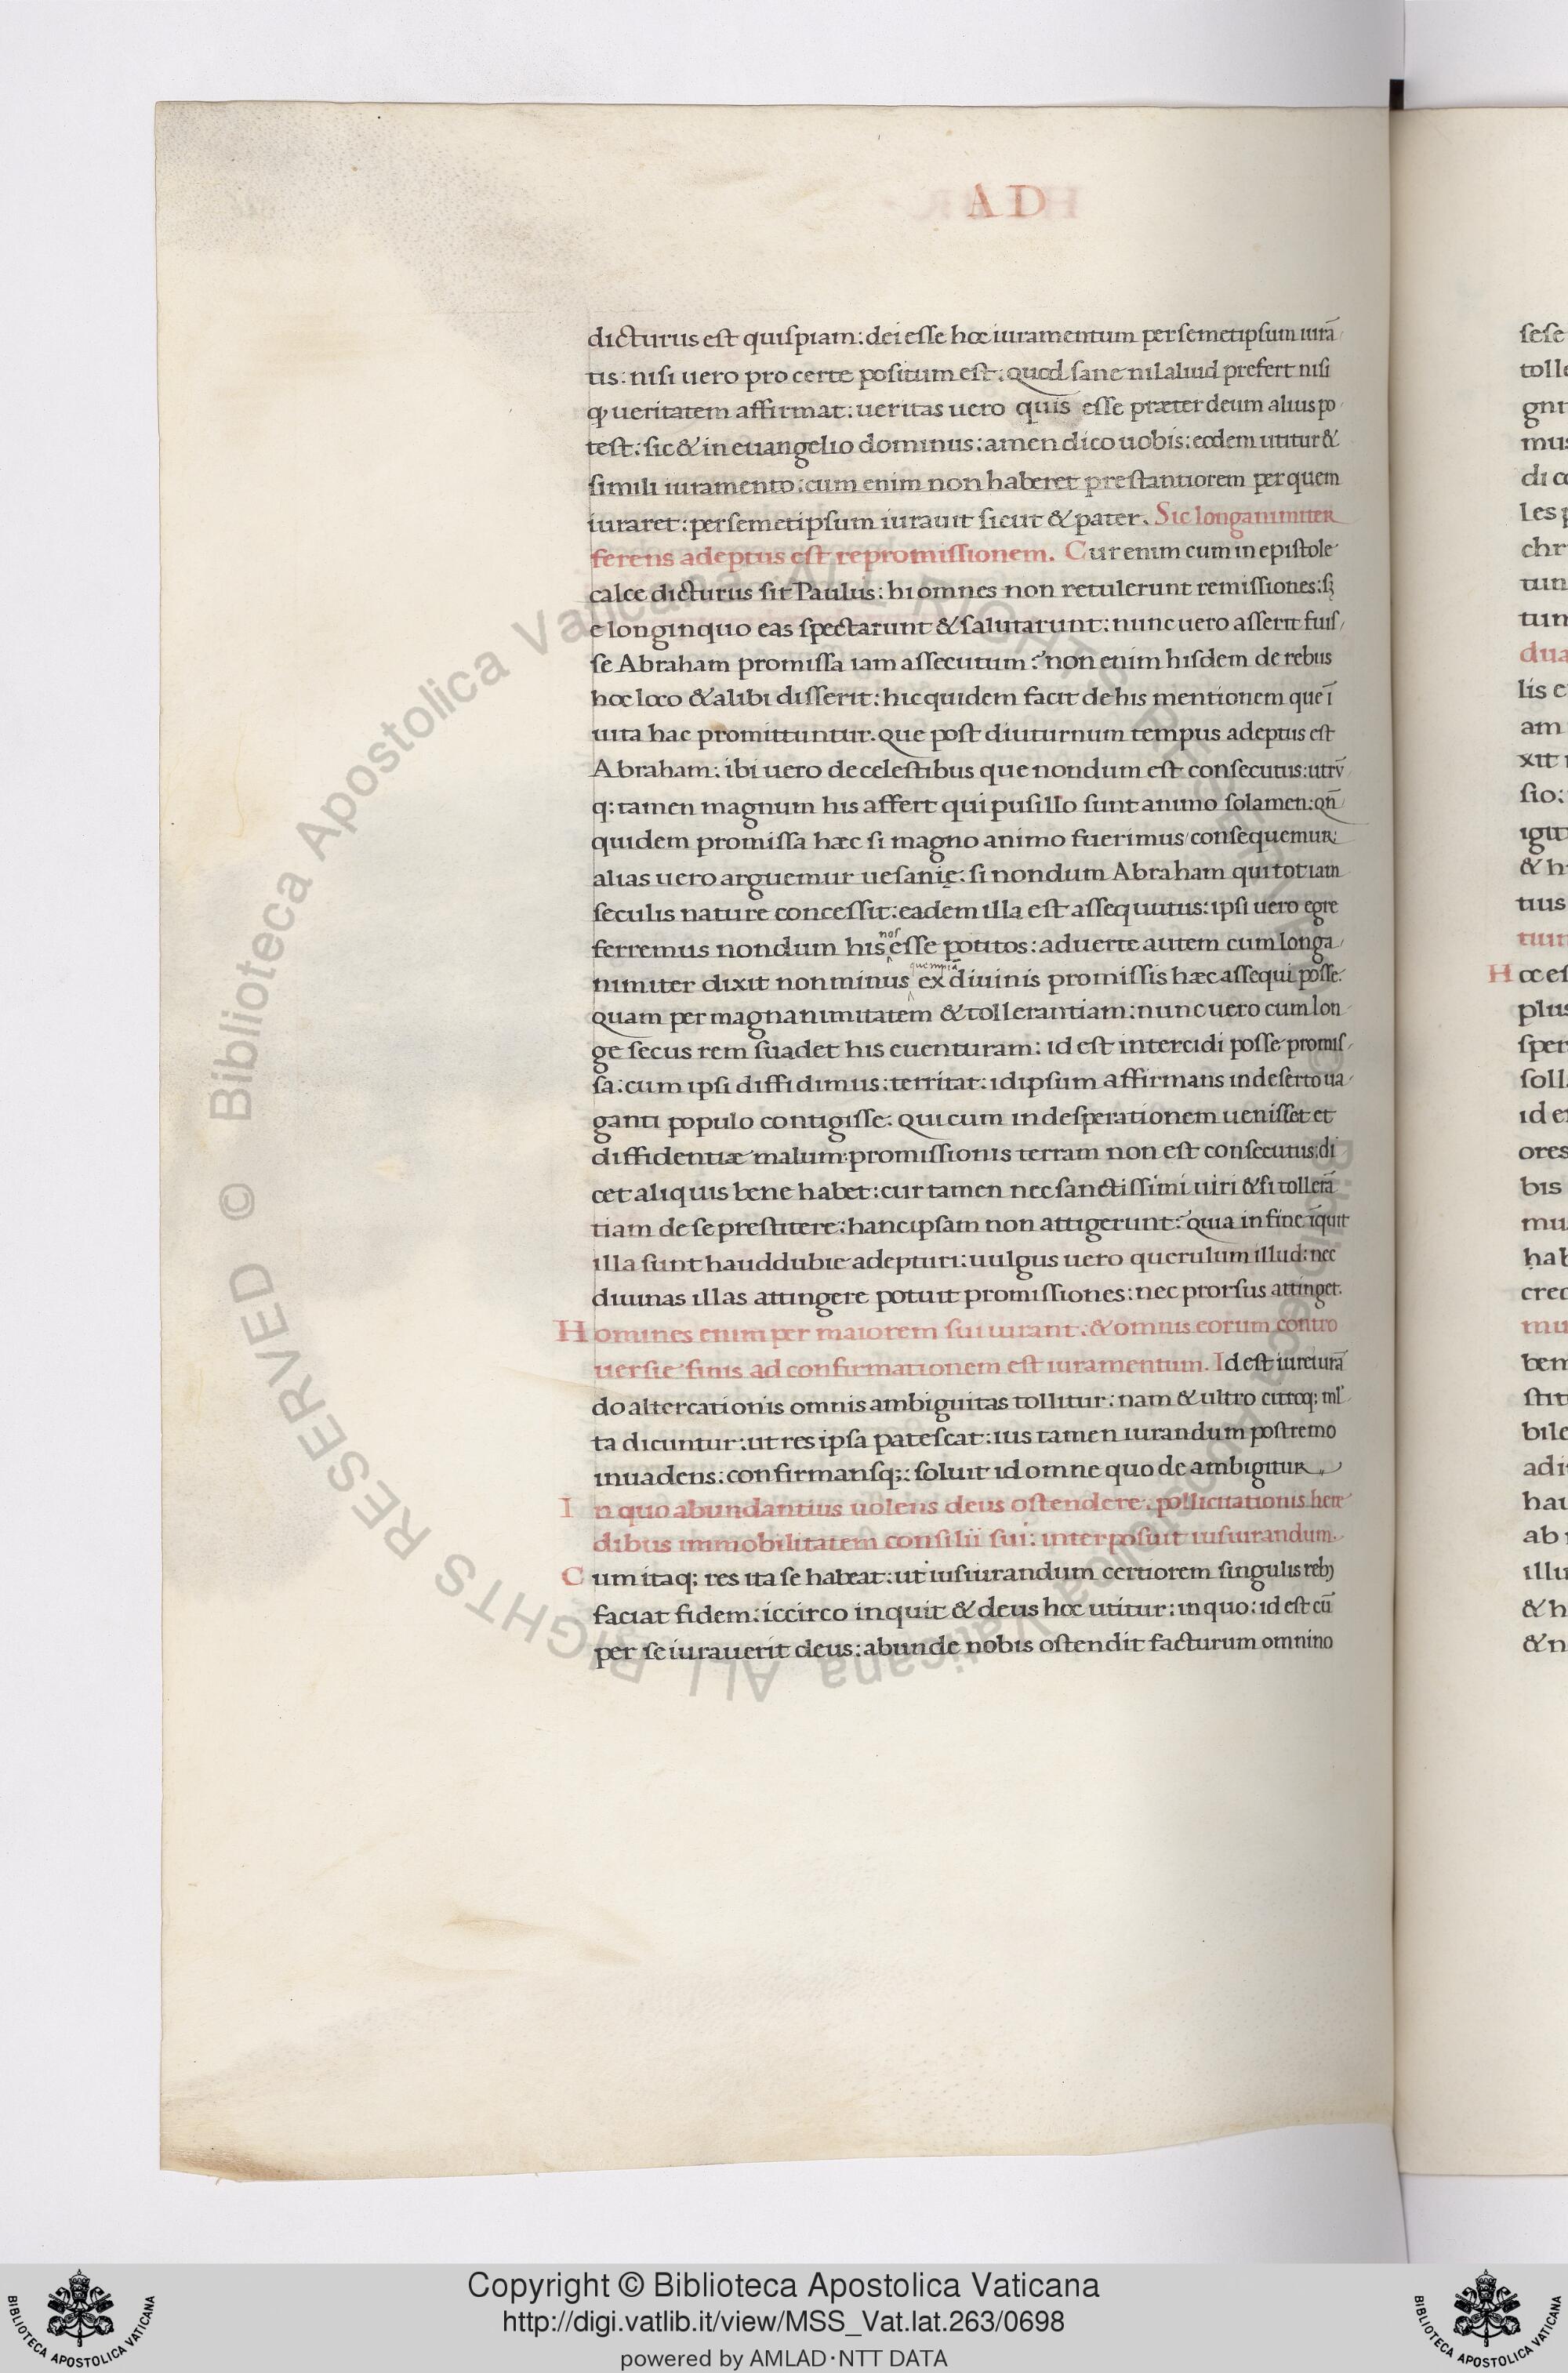 AD
dicturus est quispiam: dei esse hoc iuramentum per semetipsum iurā
tis: nisi uero pro certe positum est: quod sane nil aliud prefert nisi
ꝙ ueritatem affirmat: ueritas uero quis esse præter deum alius po
test: sic & in euangelio dominus: amen dico uobis: eodem utitur &
simili iuramento: cum enim non haberet prestantiorem per quem
iuraret: per semetipsum iurauit sicut & pater. Sic longanimiter
ferens adeptus est repromissionem. Cur enim cum in epistole
calce dicturus sit Paulus: hi omnes non retulerunt remissiones: sꝫ
e longinquo eas spectarunt & salutarunt: nunc uero asserit fuis
se Abraham promissa iam assecutum? non enim hisdem de rebus
hoc loco & alibi disserit: hic quidem facit de his mentionem que ī
uita hac promittuntur. que post diuturnum tempus adeptus est
Abraham: ibi uero de celestibus que nondum est consecutus: utrū
q; tamen magnum his affert qui pusillo sunt animo solamen: qn̄
quidem promissa hæc si magno animo fuerimus consequemur:
alias uero arguemur uesanię: si nondum Abraham qui tot iam
seculis nature concessit: eadem illa est assequutus: ipsi uero egre
ferremus nondum his nos esse potitos: aduerte autem cum longa
nimiter dixit non minus quempiā ex diuinis promissis hæc assequi posse.
quam per magnanimitatem & tollerantiam: nunc uero cum lon
ge secus rem suadet his euenturam: id est intercidi posse promis
sa: cum ipsi diffidimus: territat: id ipsum affirmans in deserto ua
ganti populo contigisse. qui cum in desperationem uenisset et
diffidentiæ malum: promissionis terram non est consecutus: di
cet aliquis bene habet: cur tamen nec sanctissimi uiri & si tollerā
tiam de se prestitere: hanc ipsam non attigerunt? quia in fine īquit
illa sunt hauddubie adepturi: uulgus uero querulum illud: nec
diuinas illas attingere potuit promissiones: nec prorsus attinget.
Homines enim per maiorem sui iurant: & omnis eorum contro
uersie finis ad confirmationem est iuramentum. Id est iureiurā
do altercationis omnis ambiguitas tollitur: nam & ultro citroq; ml̄
ta dicuntur: ut res ipsa patescat: ius tamen iurandum postremo
inuadens: confirmansq;: soluit id omne quo de ambigitur
In quo abundantius uolens deus ostendere. pollicitationis here
dibus immobilitatem consilii sui: interposuit iusiurandum.
Cum itaq; res ita se habeat: ut iusiurandum certiorem singulis rebꝫ
faciat fidem: iccirco inquit & deus hoc utitur: in quo: id est cū
per se iurauerit deus: abunde nobis ostendit facturum omnino
sese
tolle
mus
les p
chr
tun
tum
dua
lis e
am
xit
sio:
& h
tius
Hoc es
plus
sper
soll
id e
ores
bis
mu
hab
cred
mu
ben
stit
bile
adi
hau
ab
illu
& h
& n
© Biblioteca Apostolica Vaticana ALL RIGHTS RESERVED © Biblioteca Apostolica Vaticana ALL RIGHTS RESERVED
Copyright © Biblioteca Apostolica Vaticana
http://digi.vatlib.it/view/MSS_Vat.lat.263/0698
powered by AMLAD·NTT DATA
BIBLIOTECA APOSTOLICA VATICANA
BIBLIOTECA APOSTOLICA VATICANA